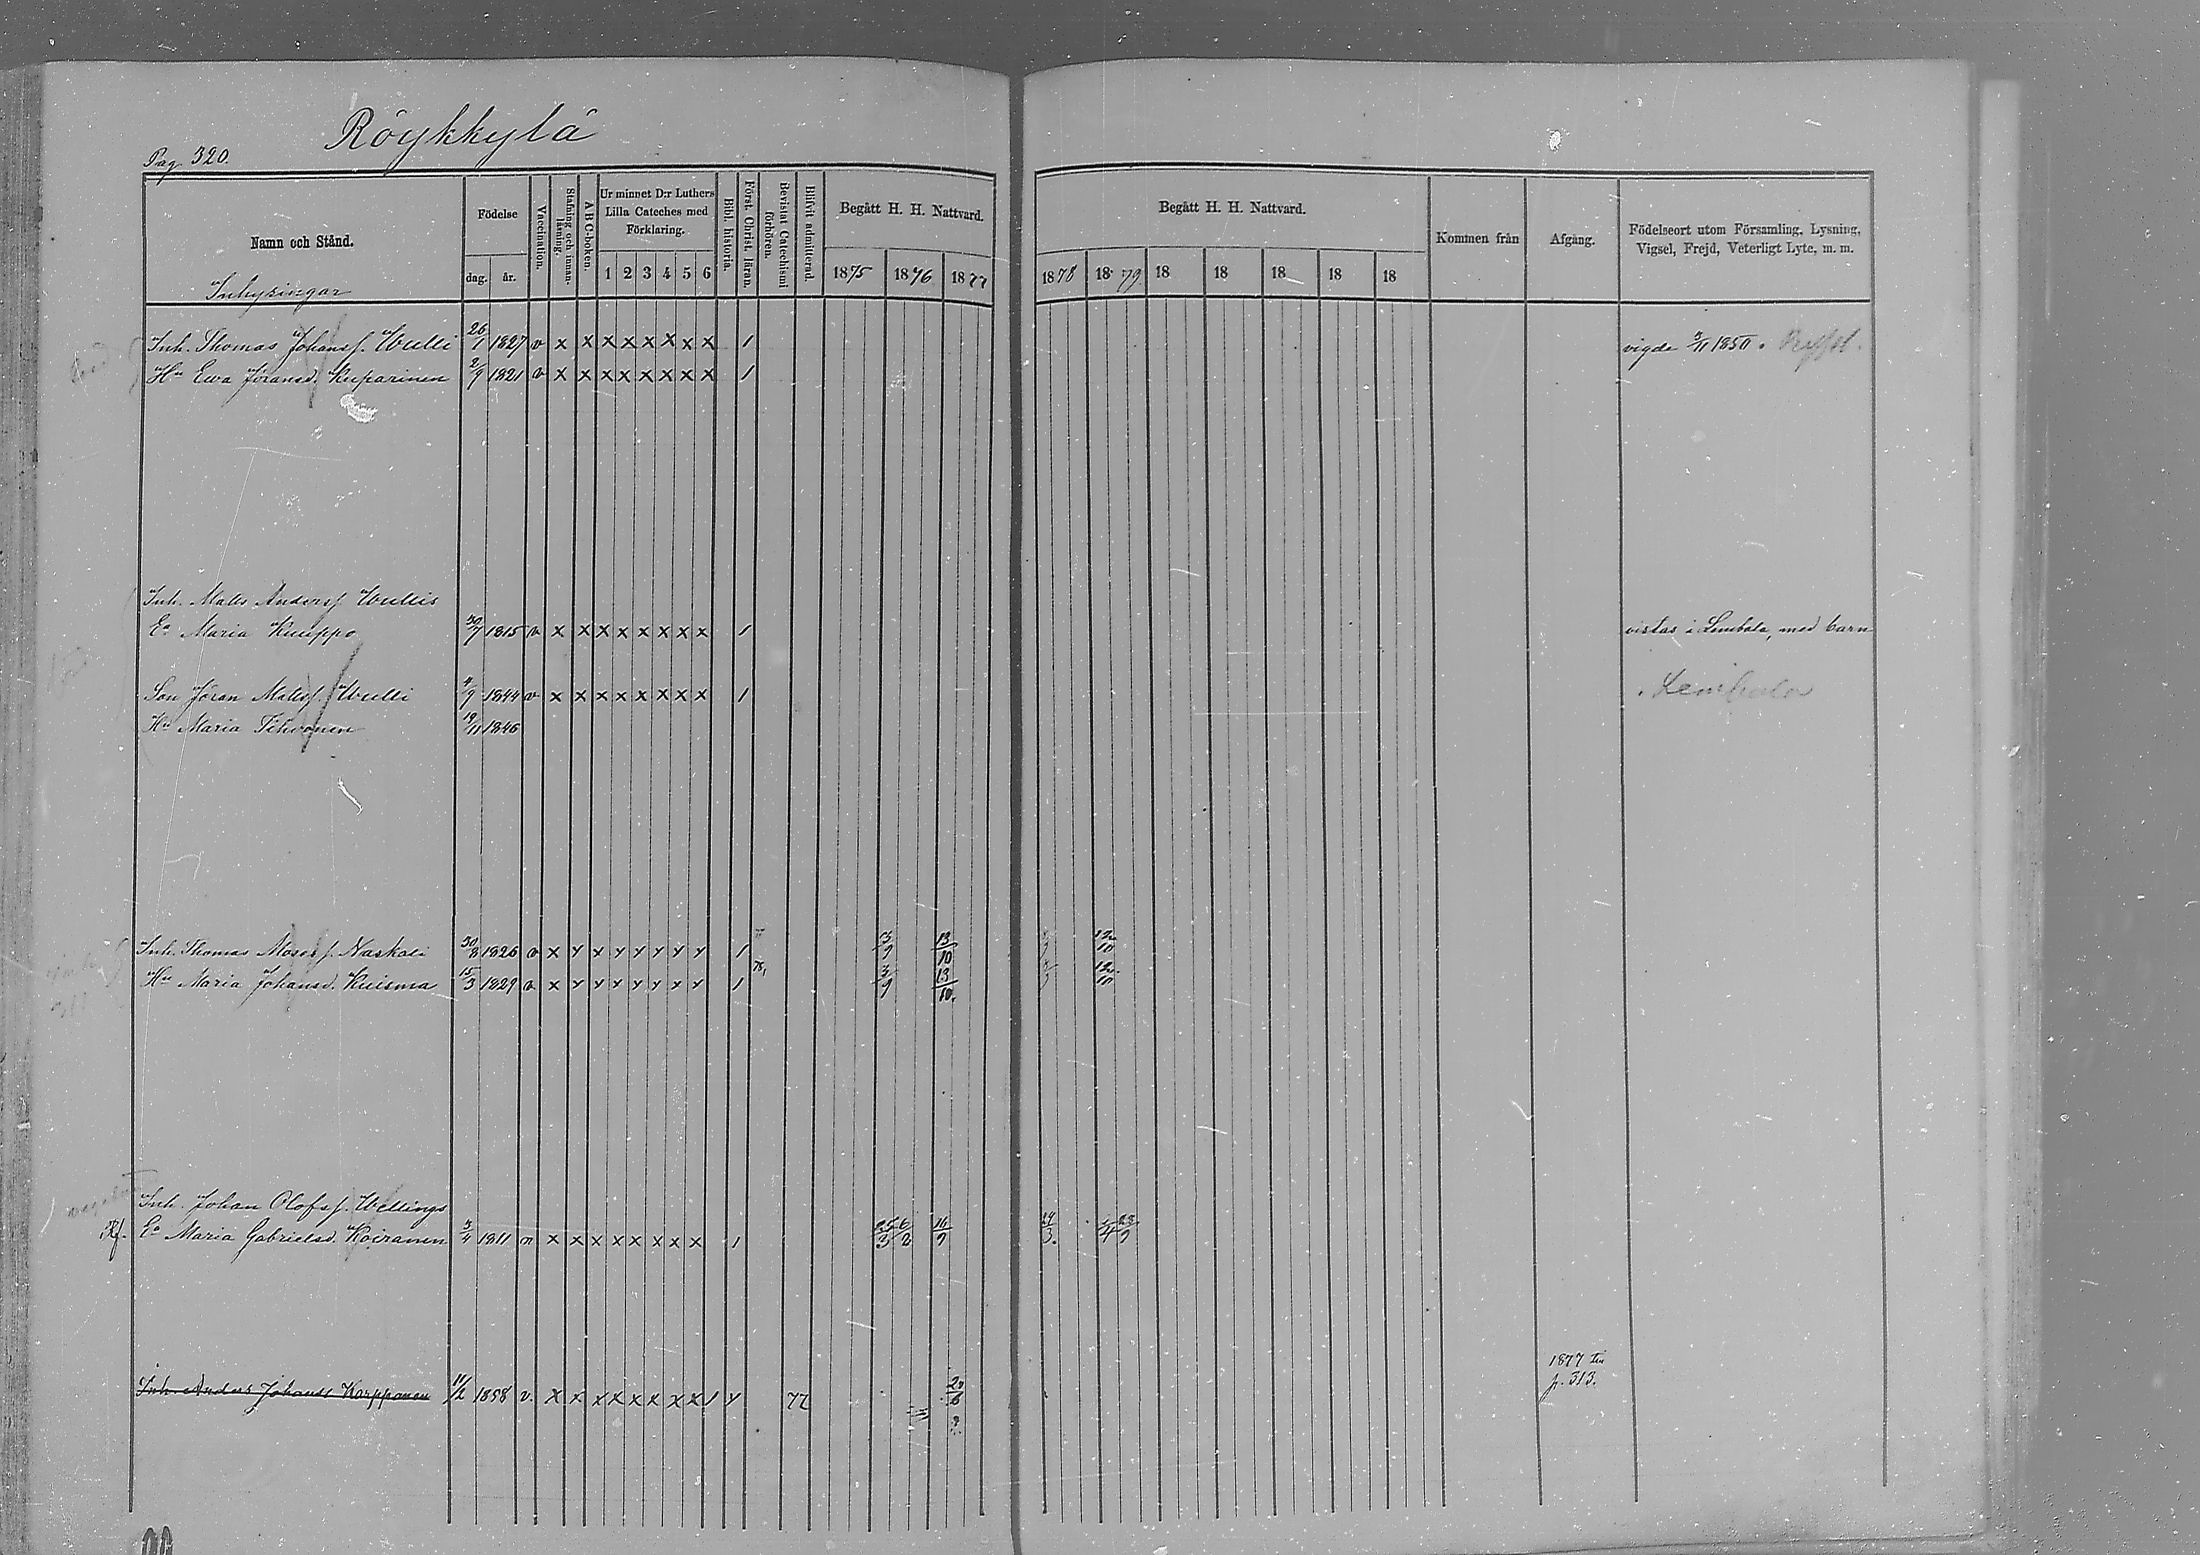 Röykkylä
Pag. 320.
Namn och Stånd.
Inhysingar
Födelse
dag. år.
Vaccination.
Stafning och innanläsning.
A B C-boken.
Ur minnet D:r Luthers
Lilla Cateches med
Förklaring.
1 2 3 4 5 6
Bibl. historia.
Först. Christ. läran.
Bevistat Catechismi förhören.
Blifvit admitterad.
Begått H. H. Nattvard.
1875 1876 1877
Begått H. H. Nattvard.
1878 1879 18 18 18 18 18
Kommen från
Afgång.
Födelseort utom Församling, Lysning,
Vigsel, Frejd, Veterligt Lyte, m. m.
Inh. Thomas Johanss. Wulli 26/1 1827 v x x x x x x x x 1 vigde 3/11 1850.
Hu Ewa Jöransd. Kuparinen 2/9 1821 v x x x x x x x x 1
Inh. Matts Anderss. Wullis
Ea Maria Knuppo 30/7 1815 v x x x x x x x x 1 vistas i Lembala, med barn
Son Jöran Mattss. Wulli 4/9 1844 v x x x x x x x x 1 Lembala
Hu Maria Tihvonen 19/11 1846
Inh. Thomas Moses s. Naskali 30/8 1826 v x x x x x x x x 1 3/9 13/10 12/10
Hu Maria Johansd. Kuisma 15/3 1829 v x x x x x x x x 1 3/9 13/10. 12/10
Inh. Johan Olofss. Wellings
Ea Maria Gabrielsd. Koiranen 3/4 1811 n x x x x x x x x 1 25/3 6/2 16/9 24/3. 23/9
Inh. Anders Johanss Karpponen 11/2 1858 v. x x x x x x x x 1 x 77 20/6
1877 till
p. 313.